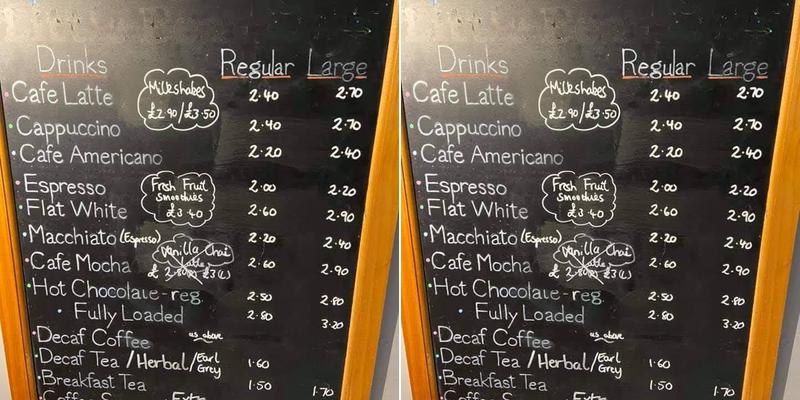 Drinks Regular Large
Cafe Latte Milkshakes £2.90/£3.50 2.40 2.70
Cappuccino 2.40 2.70
Cafe Americano 2.20 2.40
Espresso Fresh Fruit Smoothies £3.40 2.00 2.20
Flat White 2.60 2.90
Macchiato (Espresso) 2.20 2.40
Vanilla Chai Latte
Cafe Mocha £ £3(L) 2.60 2.90
Hot Chocolate-reg 2.50 2.80
Fully Loaded 2.80 3.20
Decaf Coffee us above
Decaf Tea /Herbal/Earl Grey 1.60
Breakfast Tea 1.50 1.70
Drinks Regular Large
Cafe Latte Milkshakes £2.90/£3.50 2.40 2.70
Cappuccino 2.40 2.70
Cafe Americano 2.20 2.40
Espresso Fresh Fruit Smoothies £3.40 2.00 2.20
Flat White 2.60 2.90
Macchiato (Espresso) 2.20 2.40
Vanilla Chai Latte
Cafe Mocha £ £3(L) 2.60 2.90
Hot Chocolate-reg 2.50 2.80
Fully Loaded 2.80 3.20
Decaf Coffee us above
Decaf Tea /Herbal/Earl Grey 1.60
Breakfast Tea 1.50 1.70